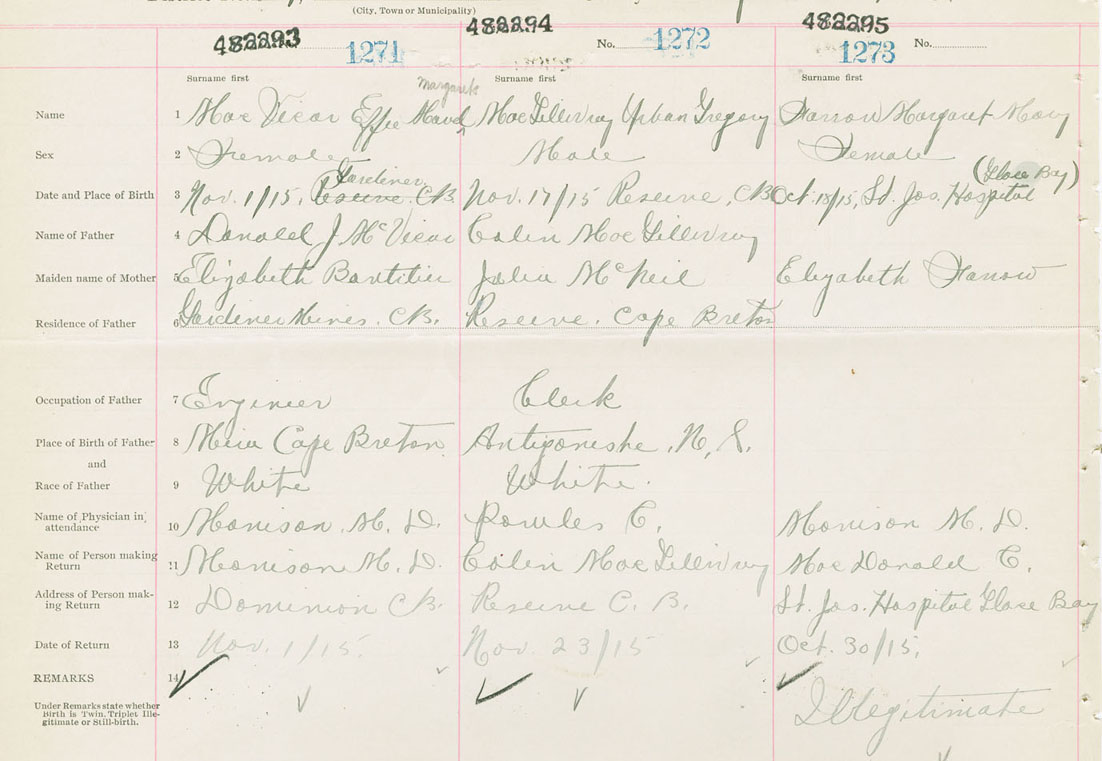 (City, Town or Municipality)
482293 482294 482295
1271 No. 1272 1273 No.
Surname first Margarets Surname first Surname first
Name 1 MacVicar Effie Maud MacGillivray Urban Gregory Farrow Margaret Mary
Sex 2 Female Male Female
Gardiner (Glace Bay)
Date and Place of Birth 3 Nov. 1/15, Reserve C.B. Nov. 17/15 Reserve, C.B. Oct. 18/15, St. Jos. Hospital
Name of Father 4 Donald J McVicar Colin MacGillivray
Maiden name of Mother 5 Elizabeth Julia McNeil Elizabeth Farrow
Residence of Father 6 Gardiner Mines. C.B. Reserve. Cape Breton
Occupation of Father 7 Engineer Clerk
Place of Birth of Father 8 Mira Cape Breton Antigonishe, N, S.
and
Race of Father 9 White White.
Name of Physician in 10 Morrison. M. D. C. Morrison M. D.
attendance
Name of Person making 11 Morrison M. D. Colin MacGillivray MacDonald C.
Return
Address of Person mak- 12 Dominion C.B. Reserve C. B. St. Jos. Hospital Glace Bay
ing Return
Date of Return 13 Nov. 1/15. Nov. 23/15 Oct. 30/15.
REMARKS 14
Under Remarks state whether Illegitimate
Birth is Twin. Triplet Ille-
gitimate or Still-birth.